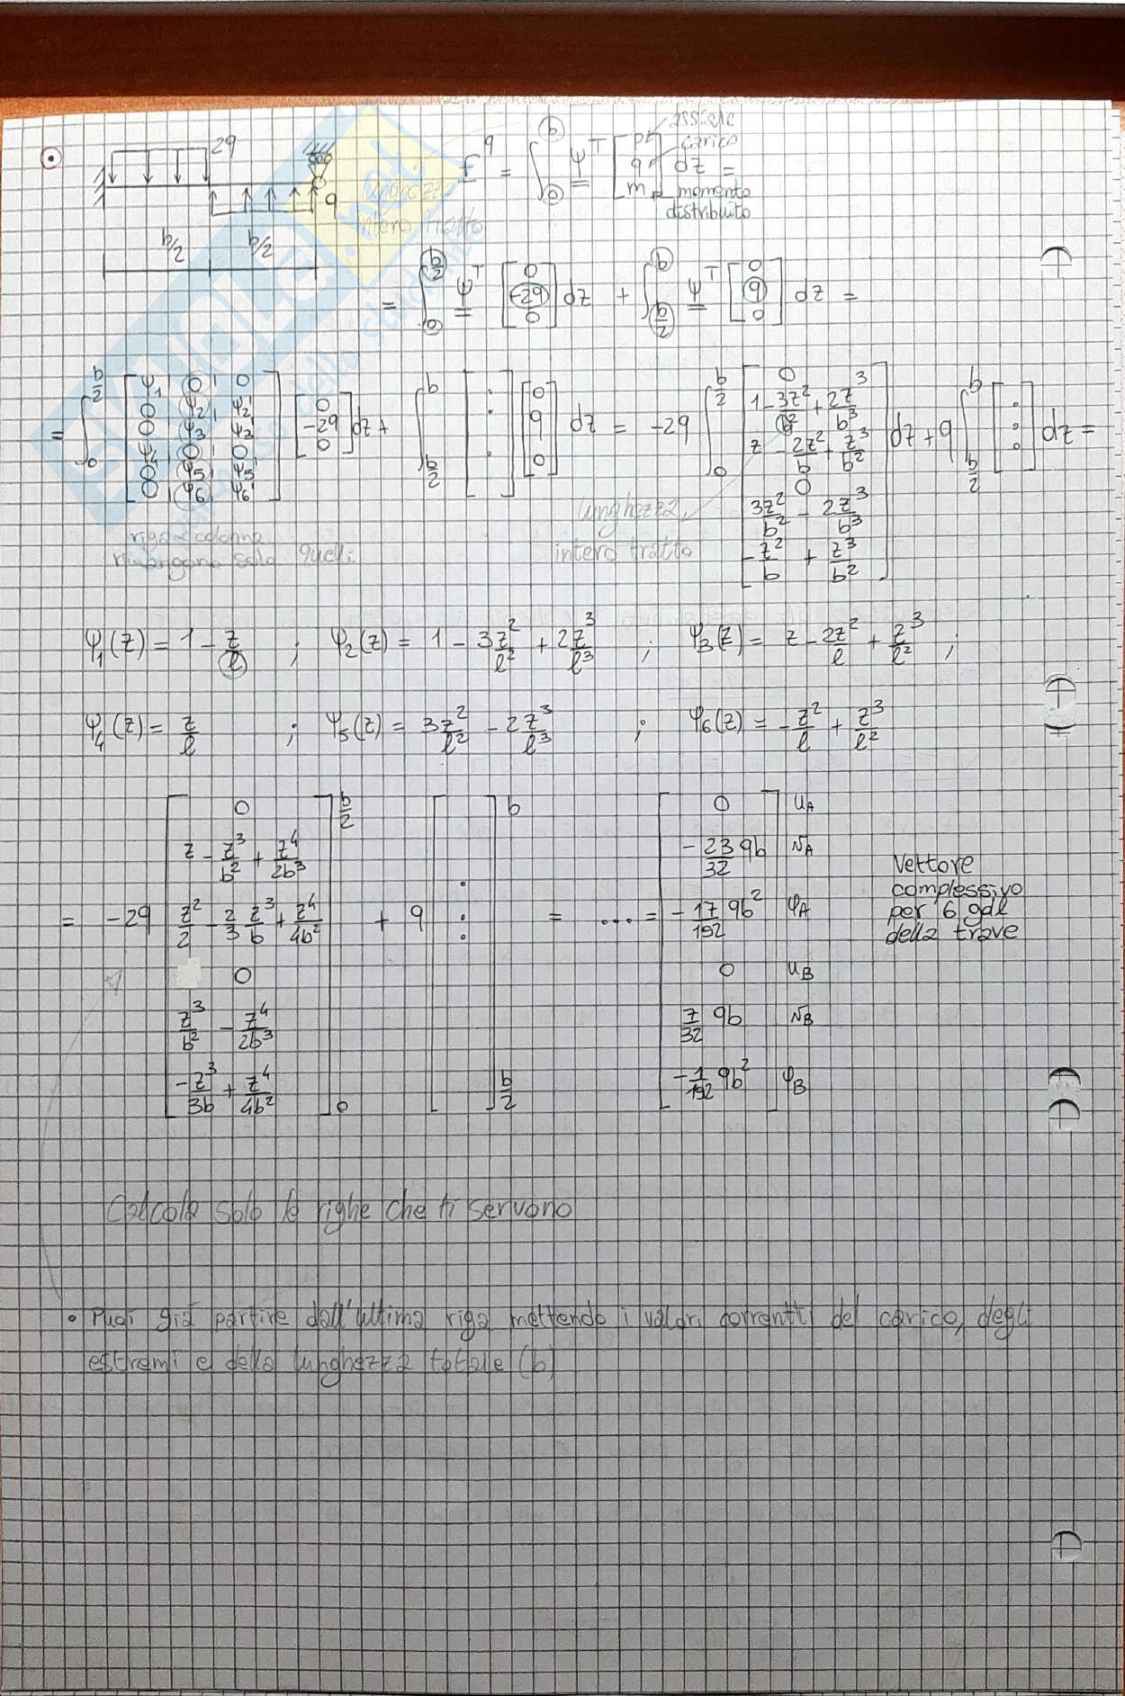 2q
q
b/2 b/2
f^q = ∫_0^b Ψ^T [p q m] dz =
assiale
carico
momento
distribuito
lunghezza
intero tratto
= ∫_0^{b/2} Ψ^T [0 -2q 0] dz + ∫_{b/2}^b Ψ^T [0 q 0] dz =
= ∫_0^{b/2} [ψ1 0 0; 0 ψ2 ψ2'; 0 ψ3 ψ3'; ψ4 0 0; 0 ψ5 ψ5'; 0 ψ6 ψ6'] [0 -2q 0] dz + ∫_{b/2}^b [⋮] [0 q 0] dz = -2q ∫_0^{b/2} [0; 1 - 3z²/b² + 2z³/b³; z - 2z²/b + z³/b²; 0; 3z²/b² - 2z³/b³; -z²/b + z³/b²] dz + q ∫_{b/2}^b [⋮] dz =
riga x colonna
rimangono solo quelli
lunghezza
intero tratto
ψ1(z) = 1 - z/l ; ψ2(z) = 1 - 3z²/l² + 2z³/l³ ; ψ3(z) = z - 2z²/l + z³/l² ;
ψ4(z) = z/l ; ψ5(z) = 3z²/l² - 2z³/l³ ; ψ6(z) = -z²/l + z³/l²
= -2q [0; z - z³/b² + z⁴/2b³; z²/2 - 2/3 z³/b + z⁴/4b²; 0; z³/b² - z⁴/2b³; -z³/3b + z⁴/4b²]_0^{b/2} + q [⋮]_{b/2}^b = .... = [0; -23/32 qb; -17/192 qb²; 0; 7/32 qb; -1/192 qb²] uA vA φA uB vB φB
Vettore
complessivo
per 6 gdl
della trave
Calcola solo le righe che ti servono
• Puoi già partire dall'ultima riga mettendo i valori corretti del carico, degli
estremi e della lunghezza totale (b)